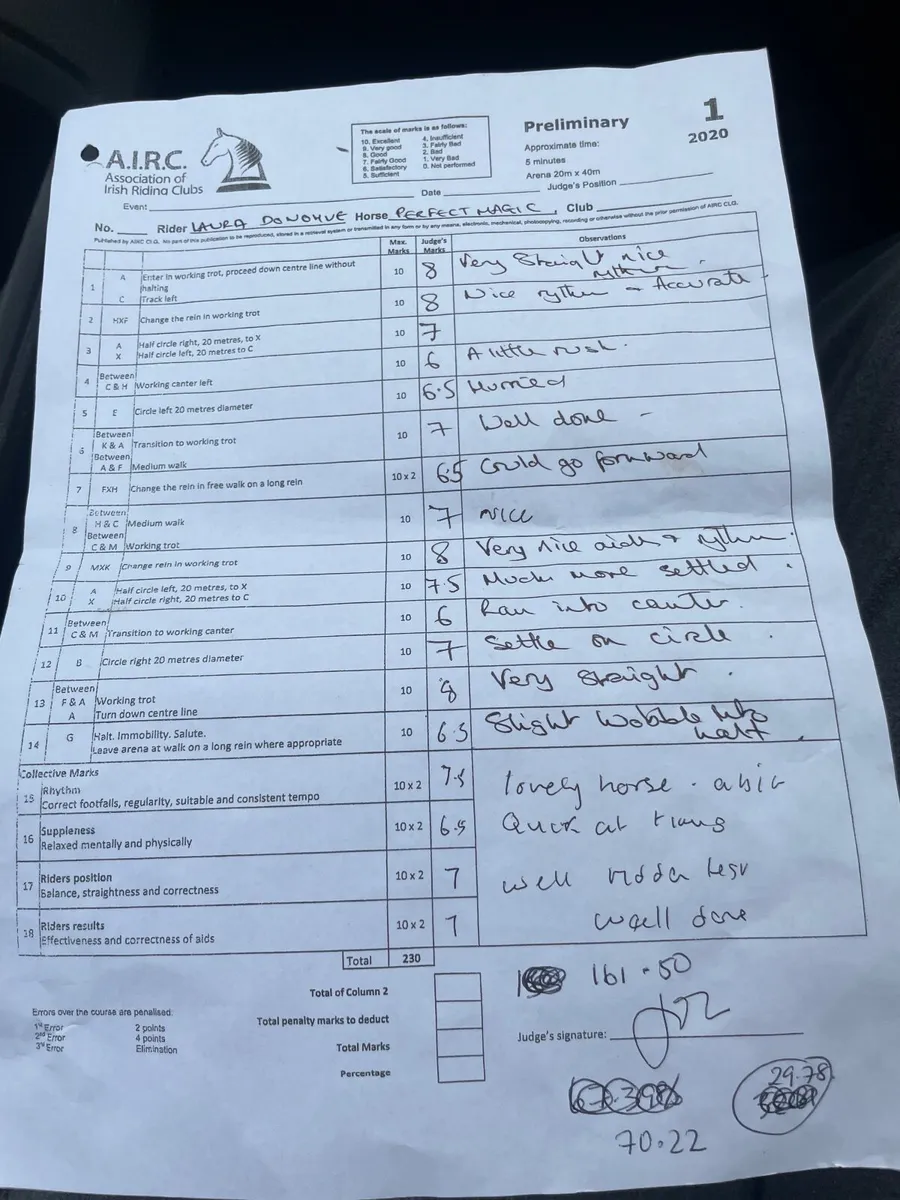 The scale of marks is as follows:
10. Excellent 4. Insufficient
9. Very good 3. Fairly Bad
8. Good 2. Bad
7. Fairly Good 1. Very Bad
6. Satisfactory 0. Not performed
5. Sufficient
Preliminary
1
2020
Approximate time:
5 minutes
Arena 20m x 40m
Judge's Position
A.I.R.C.
Association of
Irish Riding Clubs
Date
Event
No. Rider LAURA DONOHUE Horse PERFECT MAGIC Club
Published by AIRC CLG. No part of this publication to be reproduced, stored in a retrieval system or transmitted in any form or by any means, electronic, mechanical, photocopying, recording or otherwise without the prior permission of AIRC CLG.
Max. Marks Judge's Marks Observations
1 A Enter in working trot, proceed down centre line without halting 10 8 Very Straight nice rythm.
C Track left
2 HXF Change the rein in working trot 10 8 Nice rythm + Accurate
3 A Half circle right, 20 metres, to X 10 7
X Half circle left, 20 metres to C
4 Between C & H Working canter left 10 6 A little rush.
5 E Circle left 20 metres diameter 10 6.5 Hurried
6 Between K & A Transition to working trot 10 7 Well done -
Between A & F Medium walk
7 FXH Change the rein in free walk on a long rein 10 x 2 6.5 Could go forward
8 Between H & C Medium walk 10 7 NICE
Between C & M Working trot
9 MXK Change rein in working trot 10 8 Very nice aids + rythm.
10 A Half circle left, 20 metres, to X 10 7.5 Much more settled.
X Half circle right, 20 metres to C
11 Between C & M Transition to working canter 10 6 Ran into canter.
12 B Circle right 20 metres diameter 10 7 Settle on circle.
13 Between F & A Working trot 10 8 Very Straight.
A Turn down centre line
14 G Halt. Immobility. Salute. 10 6.5 Slight wobble into halt.
Leave arena at walk on a long rein where appropriate
Collective Marks
15 Rhythm 10 x 2 7.5 lovely horse. a bit
Correct footfalls, regularity, suitable and consistent tempo
16 Suppleness 10 x 2 6.5 Quick at trans
Relaxed mentally and physically
17 Riders position 10 x 2 7 well ridden test
Balance, straightness and correctness
18 Riders results 10 x 2 7 well done
Effectiveness and correctness of aids
Total 230
161.50
Total of Column 2
Total penalty marks to deduct
Total Marks
Percentage
Errors over the course are penalised:
1st Error 2 points
2nd Error 4 points
3rd Error Elimination
Judge's signature:
29.78
70.22